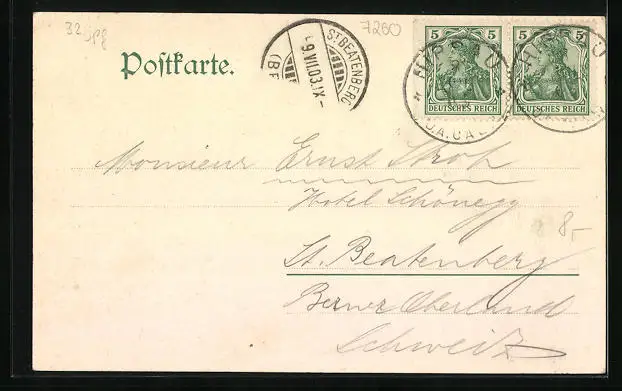 32 pfg
7260
5 5 5 5
DEUTSCHES REICH DEUTSCHES REICH
ST. BEATENBERG
9.VII.03.IX-
(BE
Postkarte.
Monsieur Ernst Stroh
Hotel Schönegg
8,-
St. Beatenberg
Berner Oberland
Schweiz